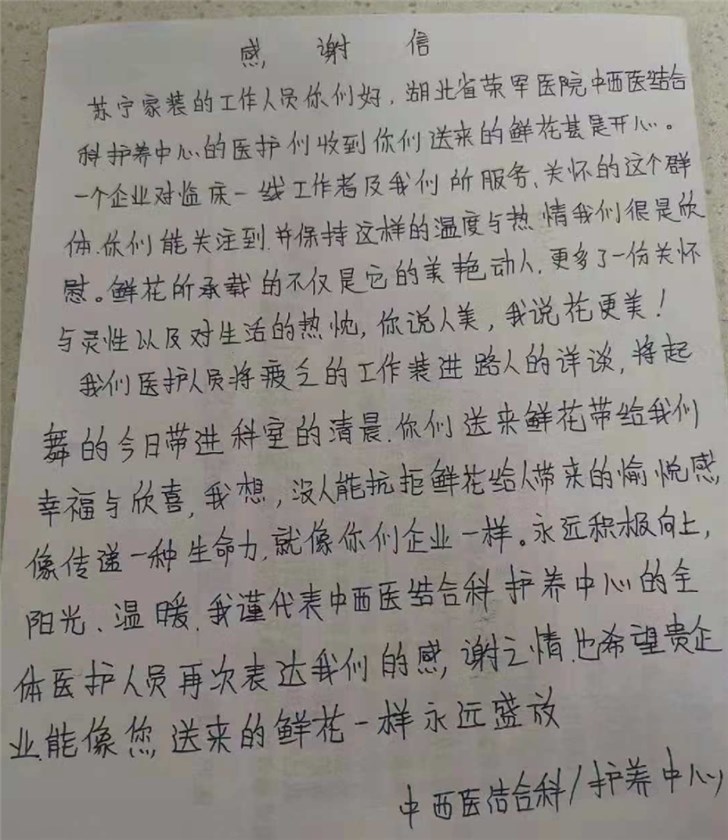 感谢信
苏宁家装的工作人员你们好，湖北省荣军医院中西医结合
科护养中心的医护们收到你们送来的鲜花甚是开心。
一个企业对临床一线工作者及我们所服务、关怀的这个群
体.你们能关注到.并保持这样的温度与热情我们很是欣
慰。鲜花所承载的不仅是它的美艳动人.更多了一份关怀
与灵性以及对生活的热忱,你说人美,我说花更美!
我们医护人员将疲乏的工作装进路人的详谈,将起
舞的今日带进科室的清晨.你们送来鲜花带给我们
幸福与欣喜,我想,没人能抗拒鲜花给人带来的愉悦感,
像传递一种生命力.就像你们企业一样。永远积极向上,
阳光、温暖.我谨代表中西医结合科护养中心的全
体医护人员再次表达我们的感谢之情.也希望贵企
业.能像您送来的鲜花一样永远盛放
中西医结合科/护养中心